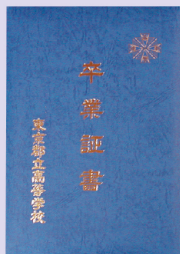 卒業証書
東京都立高等学校